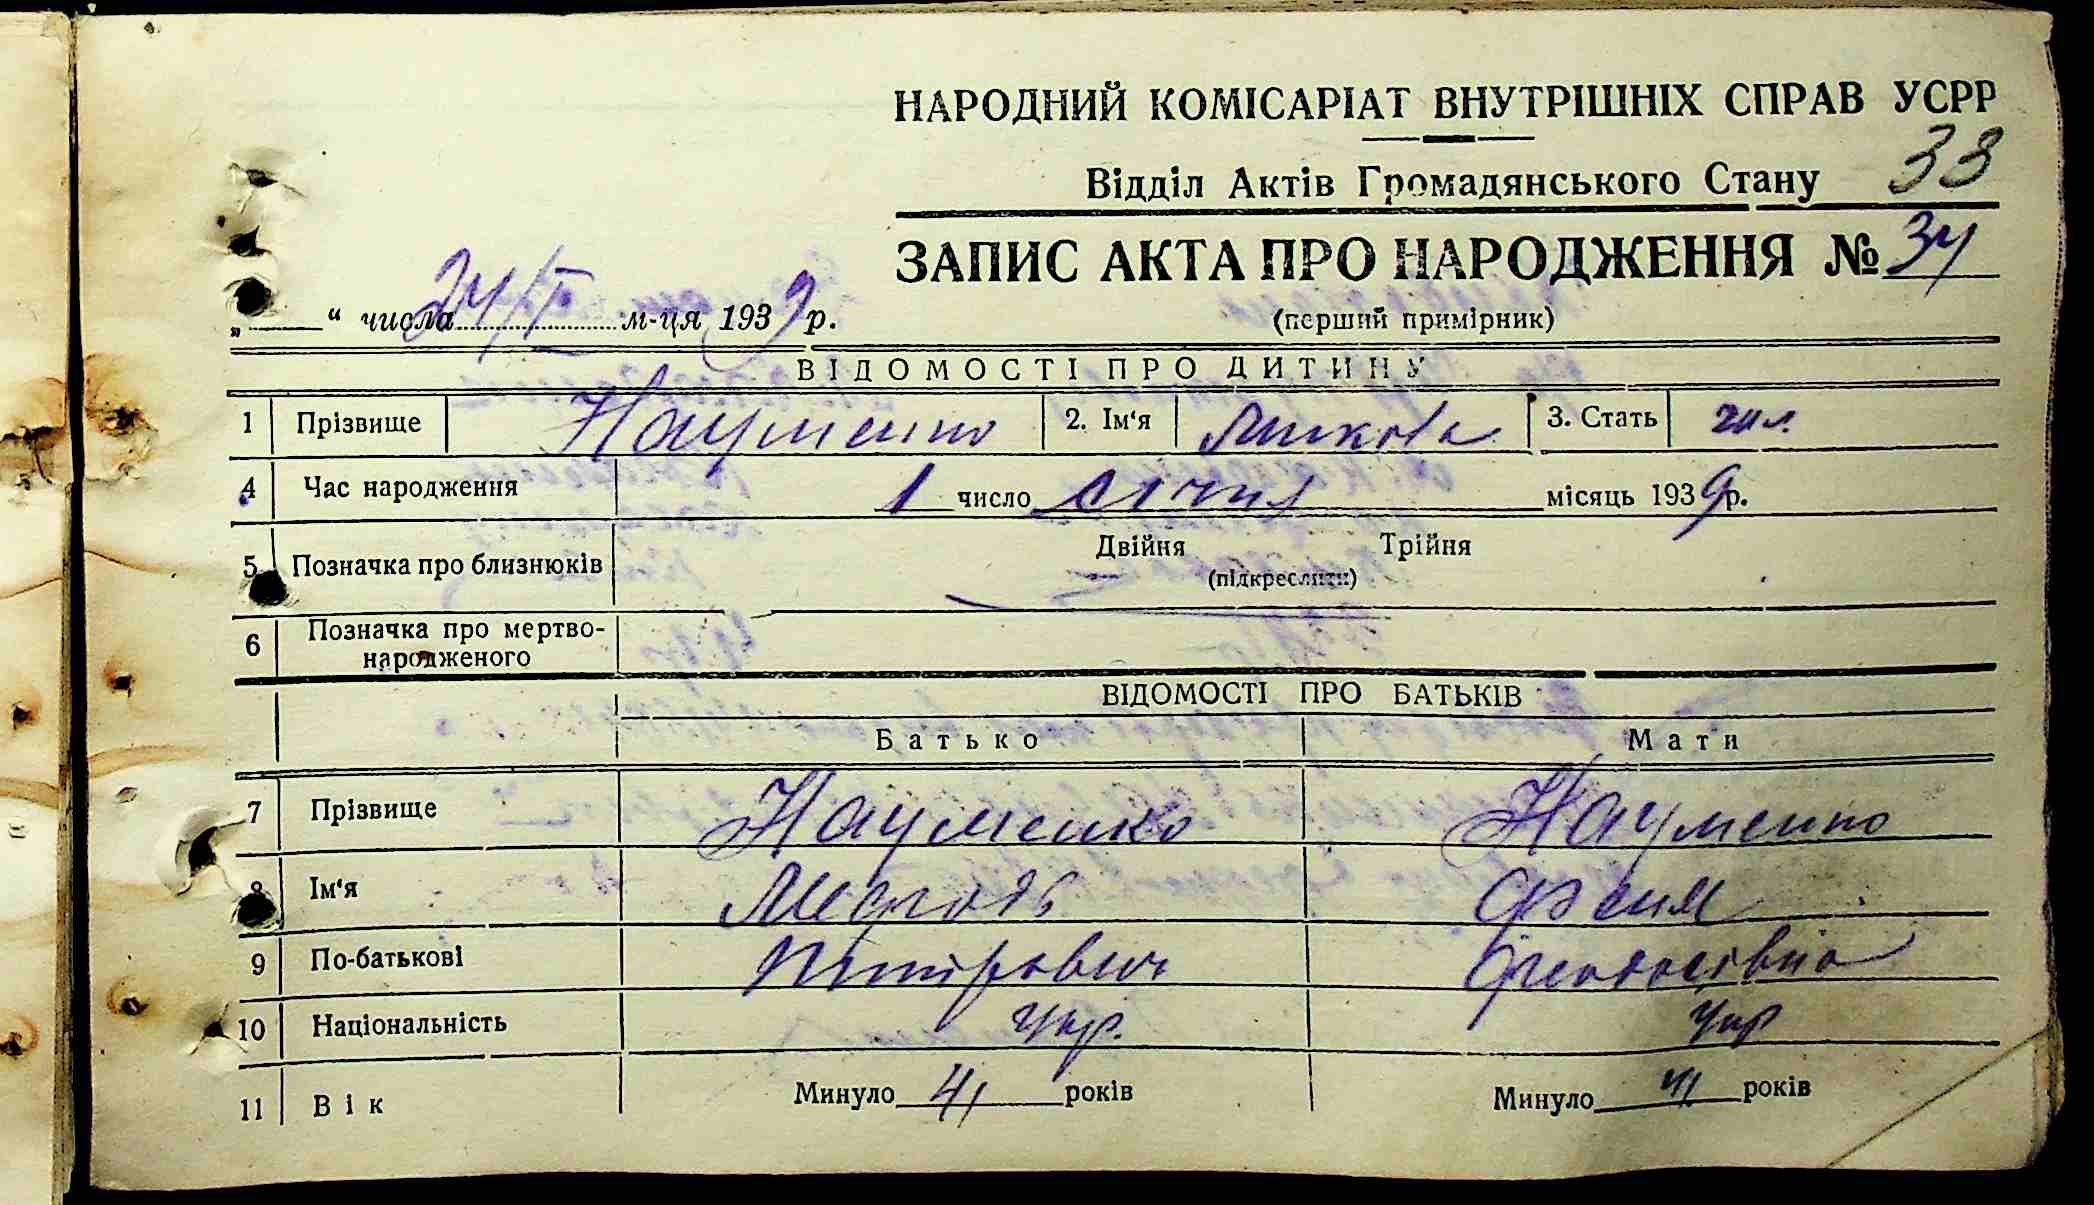 НАРОДНИЙ КОМІСАРІАТ ВНУТРІШНІХ СПРАВ УСРР
Відділ Актів Громадянського Стану 33
ЗАПИС АКТА ПРО НАРОДЖЕННЯ № 34
„ “ числа 24/I м-ця 1939 р.
(перший примірник)
ВІДОМОСТІ ПРО ДИТИНУ
1 Прізвище Науменко 2. Ім‘я Микола 3. Стать чол.
4 Час народження 1 число січня місяць 1939 р.
5 Позначка про близнюків Двійня Трійня
(підкреслити)
6 Позначка про мертво-
народженого
ВІДОМОСТІ ПРО БАТЬКІВ
Батько Мати
7 Прізвище Науменко Науменко
8 Ім‘я
9 По-батькові Петрович Феодосіївна
10 Національність Укр. Укр
11 Вік Минуло 41 років Минуло 41 років